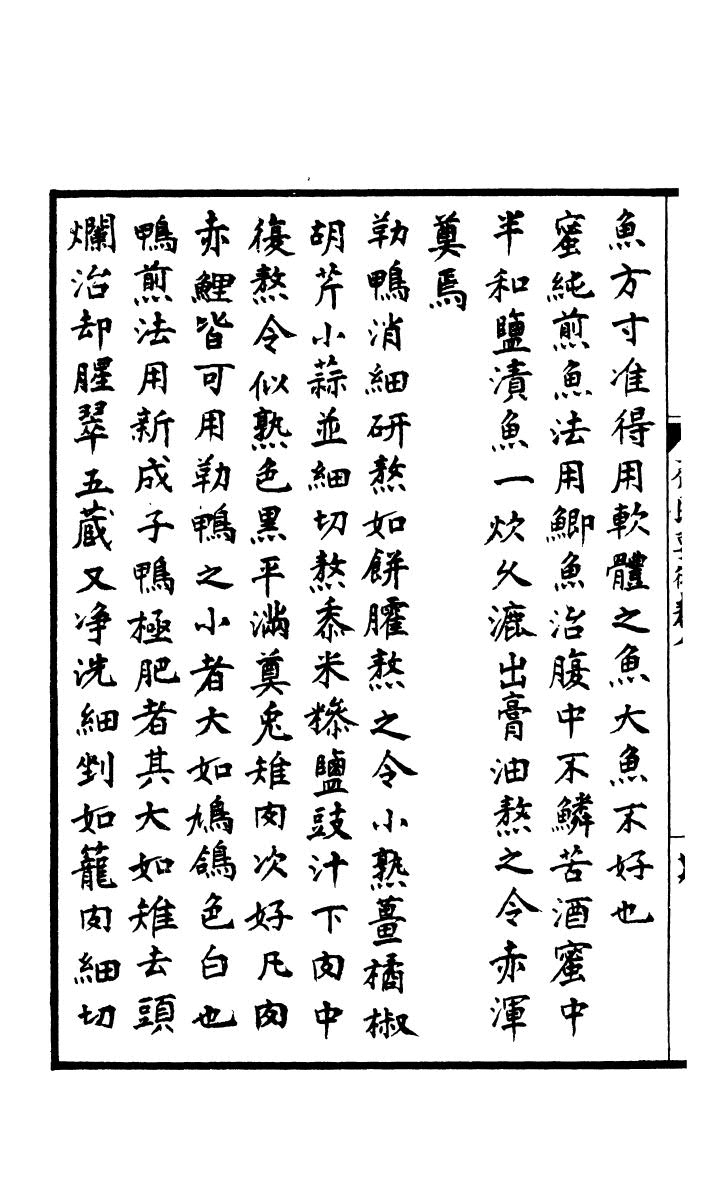 魚方寸准得用軟體之魚大魚不好也
蜜純煎魚法用鯽魚治腹中不鱗苦酒蜜中
半和鹽漬魚一炊久漉出膏油熬之令赤渾
奠焉
勒鴨消細研熬如餅臛熬之令小熟薑橘椒
胡芹小蒜並細切熬黍米糝鹽豉汁下肉中
復熬令似熟色黑平滿奠兎雉肉次好凡肉
赤鯉皆可用勒鴨之小者大如鳩鴿色白也
鴨煎法用新成子鴨極肥者其大如雉去頭
爛治却腥翠五藏又净洗細剉如籠肉細切